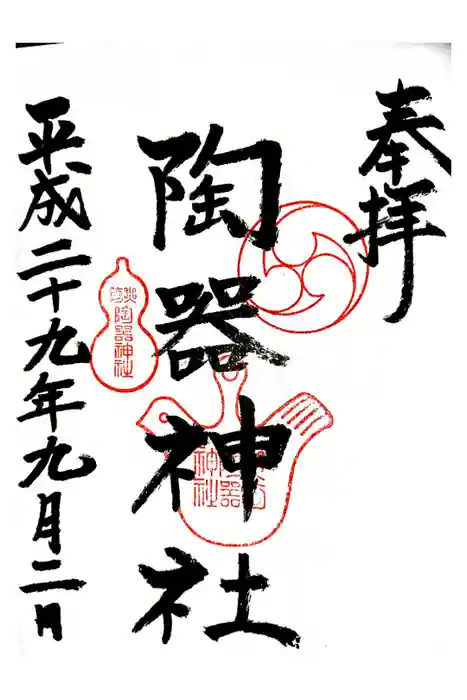 奉拝
陶器神社
平成二十九年九月二日
陶器神社